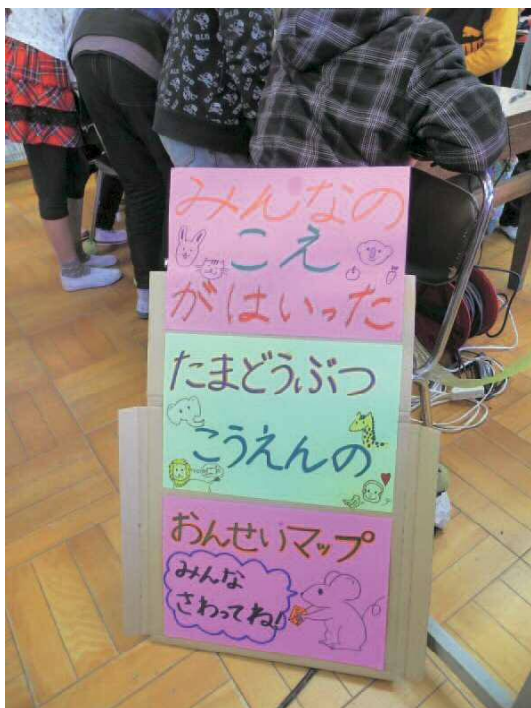 みんなの
こえ
がはいった
たまどうぶつ
こうえんの
おんせいマップ
みんな
さわってね!